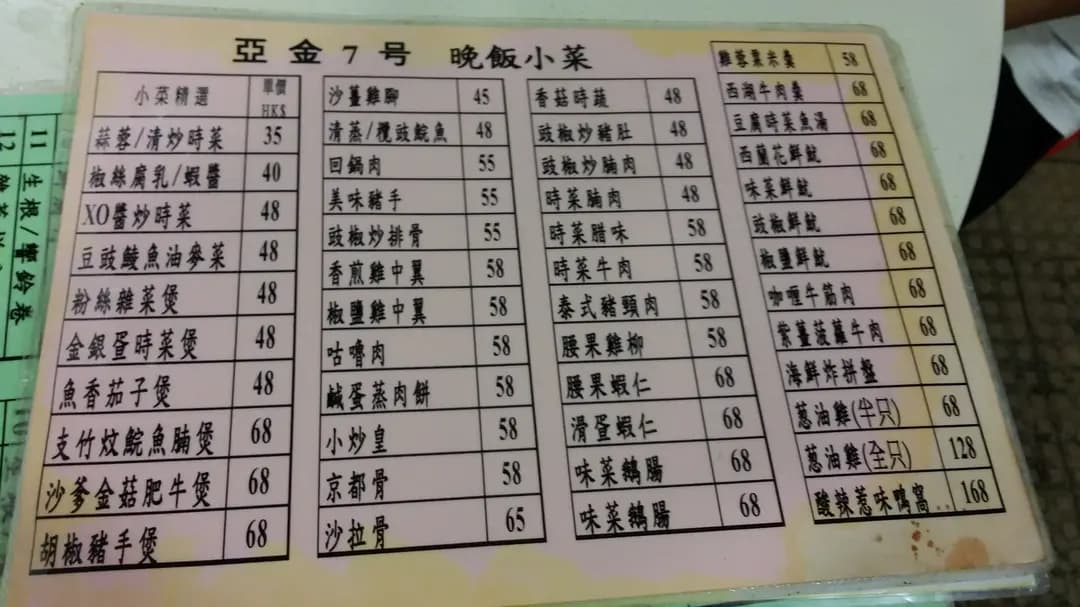 亞金7号 晚飯小菜
小菜精選 單價 HK$
蒜蓉/清炒時菜 35
椒絲腐乳/蝦醬 40
XO醬炒時菜 48
豆豉鯪魚油麥菜 48
粉絲雜菜煲 48
金銀蛋時菜煲 48
魚香茄子煲 48
支竹炆鯇魚腩煲 68
沙爹金菇肥牛煲 68
胡椒豬手煲 68
沙薑雞腳 45
清蒸/欖豉鯇魚 48
回鍋肉 55
美味豬手 55
豉椒炒排骨 55
香煎雞中翼 58
椒鹽雞中翼 58
咕嚕肉 58
鹹蛋蒸肉餅 58
小炒皇 58
京都骨 58
沙拉骨 65
香菇時蔬 48
豉椒炒豬肚 48
豉椒炒腩肉 48
時菜腩肉 48
時菜腊味 58
時菜牛肉 58
泰式豬頸肉 58
腰果雞柳 58
腰果蝦仁 68
滑蛋蝦仁 68
味菜鵝腸 68
味菜鵝腸 68
雞蓉粟米羹 58
西湖牛肉羹 68
豆腐時菜魚湯 68
西蘭花鮮魷 68
味菜鮮魷 68
豉椒鮮魷 68
椒鹽鮮魷 68
咖喱牛筋肉 68
紫薑菠蘿牛肉 68
海鮮炸拼盤 68
蔥油雞(半只) 68
蔥油雞(全只) 128
酸辣惹味鴨窩.. 168
11 生根/響鈴卷
12
10